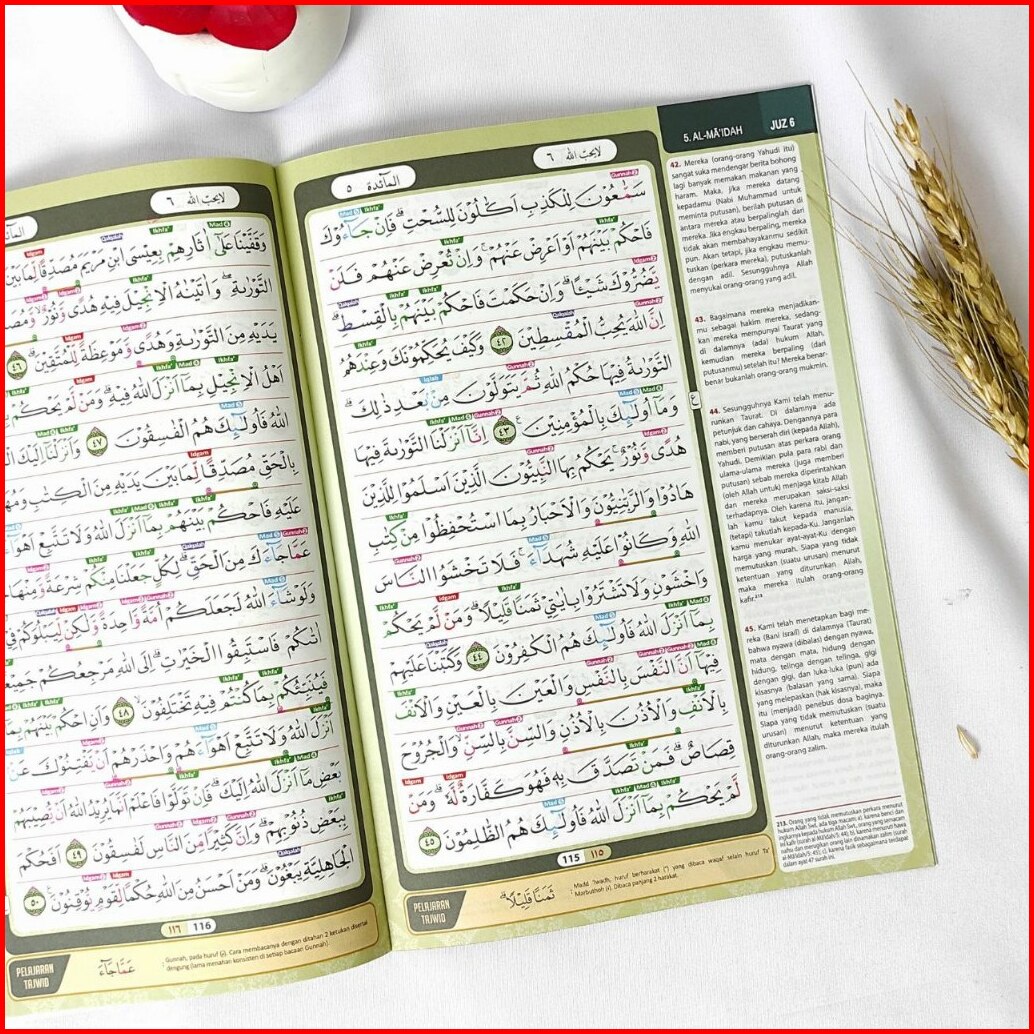 5. AL-MĀ'IDAH JUZ 6
لايحبّ الله ٦
المآئدة ٥
سَمّٰعُوْنَ لِلْكَذِبِ اَكّٰلُوْنَ لِلسُّحْتِۗ فَاِنْ جَاۤءُوْكَ
فَاحْكُمْ بَيْنَهُمْ اَوْ اَعْرِضْ عَنْهُمْ ۚوَاِنْ تُعْرِضْ عَنْهُمْ فَلَنْ
يَّضُرُّوْكَ شَيْـًٔاۗ وَاِنْ حَكَمْتَ فَاحْكُمْ بَيْنَهُمْ بِالْقِسْطِۗ
اِنَّ اللّٰهَ يُحِبُّ الْمُقْسِطِيْنَ ٤٢ وَكَيْفَ يُحَكِّمُوْنَكَ وَعِنْدَهُمُ
التَّوْرٰىةُ فِيْهَا حُكْمُ اللّٰهِ ثُمَّ يَتَوَلَّوْنَ مِنْۢ بَعْدِ ذٰلِكَۗ
وَمَآ اُولٰۤىِٕكَ بِالْمُؤْمِنِيْنَ ٤٣ اِنَّآ اَنْزَلْنَا التَّوْرٰىةَ فِيْهَا
هُدًى وَّنُوْرٌۚ يَحْكُمُ بِهَا النَّبِيُّوْنَ الَّذِيْنَ اَسْلَمُوْا لِلَّذِيْنَ
هَادُوْا وَالرَّبّٰنِيُّوْنَ وَالْاَحْبَارُ بِمَا اسْتُحْفِظُوْا مِنْ كِتٰبِ
اللّٰهِ وَكَانُوْا عَلَيْهِ شُهَدَاۤءَۚ فَلَا تَخْشَوُا النَّاسَ
وَاخْشَوْنِ وَلَا تَشْتَرُوْا بِاٰيٰتِيْ ثَمَنًا قَلِيْلًاۗ وَمَنْ لَّمْ يَحْكُمْ
بِمَآ اَنْزَلَ اللّٰهُ فَاُولٰۤىِٕكَ هُمُ الْكٰفِرُوْنَ ٤٤ وَكَتَبْنَا عَلَيْهِمْ
فِيْهَآ اَنَّ النَّفْسَ بِالنَّفْسِ وَالْعَيْنَ بِالْعَيْنِ وَالْاَنْفَ
بِالْاَنْفِ وَالْاُذُنَ بِالْاُذُنِ وَالسِّنَّ بِالسِّنِّ وَالْجُرُوْحَ
قِصَاصٌۗ فَمَنْ تَصَدَّقَ بِهٖ فَهُوَ كَفَّارَةٌ لَّهٗ ۗوَمَنْ
لَّمْ يَحْكُمْ بِمَآ اَنْزَلَ اللّٰهُ فَاُولٰۤىِٕكَ هُمُ الظّٰلِمُوْنَ ٤٥
115 ١١٥
PELAJARAN
TAJWID
ثَمَنًا قَلِيْلًاۗ
42. Mereka (orang-orang Yahudi itu)
sangat suka mendengar berita bohong
lagi banyak memakan makanan yang
haram. Maka, jika mereka datang
kepadamu (Nabi Muhammad untuk
meminta putusan), berilah putusan di
antara mereka atau berpalinglah dari
mereka. Jika engkau berpaling, mereka
tidak akan membahayakanmu sedikit
pun. Akan tetapi, jika engkau memu-
tuskan (perkara mereka), putuskanlah
dengan adil. Sesungguhnya Allah
menyukai orang-orang yang adil.
43. Bagaimana mereka menjadikan-
mu sebagai hakim mereka, sedang-
kan mereka mempunyai Taurat yang
di dalamnya (ada) hukum Allah,
kemudian mereka berpaling (dari
putusanmu) setelah itu? Mereka benar-
benar bukanlah orang-orang mukmin.
44. Sesungguhnya Kami telah menu-
runkan Taurat. Di dalamnya ada
petunjuk dan cahaya. Dengannya para
nabi, yang berserah diri (kepada Allah),
memberi putusan atas perkara orang
Yahudi. Demikian pula para rabi dan
ulama-ulama mereka (juga memberi
putusan) sebab mereka diperintahkan
(oleh Allah untuk) menjaga kitab Allah
dan mereka merupakan saksi-saksi
terhadapnya. Oleh karena itu, jangan-
lah kamu takut kepada manusia,
(tetapi) takutlah kepada-Ku. Janganlah
kamu menukar ayat-ayat-Ku dengan
harga yang murah. Siapa yang tidak
memutuskan (suatu urusan) menurut
ketentuan yang diturunkan Allah,
maka mereka itulah orang-orang
kafir.²¹³
45. Kami telah menetapkan bagi me-
reka (Bani Israil) di dalamnya (Taurat)
bahwa nyawa (dibalas) dengan nyawa,
mata dengan mata, hidung dengan
hidung, telinga dengan telinga, gigi
dengan gigi, dan luka-luka (pun) ada
kisasnya (balasan yang sama). Siapa
yang melepaskan (hak kisasnya), maka
itu (menjadi) penebus dosa baginya.
Siapa yang tidak memutuskan (suatu
urusan) menurut ketentuan yang
diturunkan Allah, maka mereka itulah
orang-orang zalim.
لايحبّ الله ٦
وَقَفَّيْنَا عَلٰٓى اٰثَارِهِمْ بِعِيْسَى ابْنِ مَرْيَمَ مُصَدِّقًا لِّمَا بَيْنَ
التَّوْرٰىةِ ۖوَاٰتَيْنٰهُ الْاِنْجِيْلَ فِيْهِ هُدًى وَّنُوْرٌۙ
يَدَيْهِ مِنَ التَّوْرٰىةِ وَهُدًى وَّمَوْعِظَةً لِّلْمُتَّقِيْنَۗ ٤٦
اَهْلُ الْاِنْجِيْلِ بِمَآ اَنْزَلَ اللّٰهُ فِيْهِۗ وَمَنْ لَّمْ يَحْكُمْ
اللّٰهُ فَاُولٰۤىِٕكَ هُمُ الْفٰسِقُوْنَ ٤٧ وَاَنْزَلْنَآ اِلَيْكَ
بِالْحَقِّ مُصَدِّقًا لِّمَا بَيْنَ يَدَيْهِ مِنَ الْكِتٰبِ
عَلَيْهِ فَاحْكُمْ بَيْنَهُمْ بِمَآ اَنْزَلَ اللّٰهُ وَلَا تَتَّبِعْ
عَمَّا جَاۤءَكَ مِنَ الْحَقِّۗ لِكُلٍّ جَعَلْنَا مِنْكُمْ شِرْعَةً
وَلَوْ شَاۤءَ اللّٰهُ لَجَعَلَكُمْ اُمَّةً وَّاحِدَةً وَّلٰكِنْ لِّيَبْلُوَكُمْ
اٰتٰىكُمْ فَاسْتَبِقُوا الْخَيْرٰتِۗ اِلَى اللّٰهِ مَرْجِعُكُمْ
فَيُنَبِّئُكُمْ بِمَا كُنْتُمْ فِيْهِ تَخْتَلِفُوْنَۙ ٤٨ وَاَنِ احْكُمْ بَيْنَهُمْ
اَنْزَلَ اللّٰهُ وَلَا تَتَّبِعْ اَهْوَاۤءَهُمْ وَاحْذَرْهُمْ اَنْ يَّفْتِنُوْكَ
بَعْضِ مَآ اَنْزَلَ اللّٰهُ اِلَيْكَۗ فَاِنْ تَوَلَّوْا فَاعْلَمْ اَنَّمَا يُرِيْدُ اللّٰهُ اَنْ يُّصِيْبَهُمْ
بِبَعْضِ ذُنُوْبِهِمْۗ وَاِنَّ كَثِيْرًا مِّنَ النَّاسِ لَفٰسِقُوْنَ ٤٩ اَفَحُكْمَ
الْجَاهِلِيَّةِ يَبْغُوْنَۗ وَمَنْ اَحْسَنُ مِنَ اللّٰهِ حُكْمًا لِّقَوْمٍ يُّوْقِنُوْنَ ٥٠
١١٦ 116
PELAJARAN
TAJWID
عَمَّا جَاۤءَ